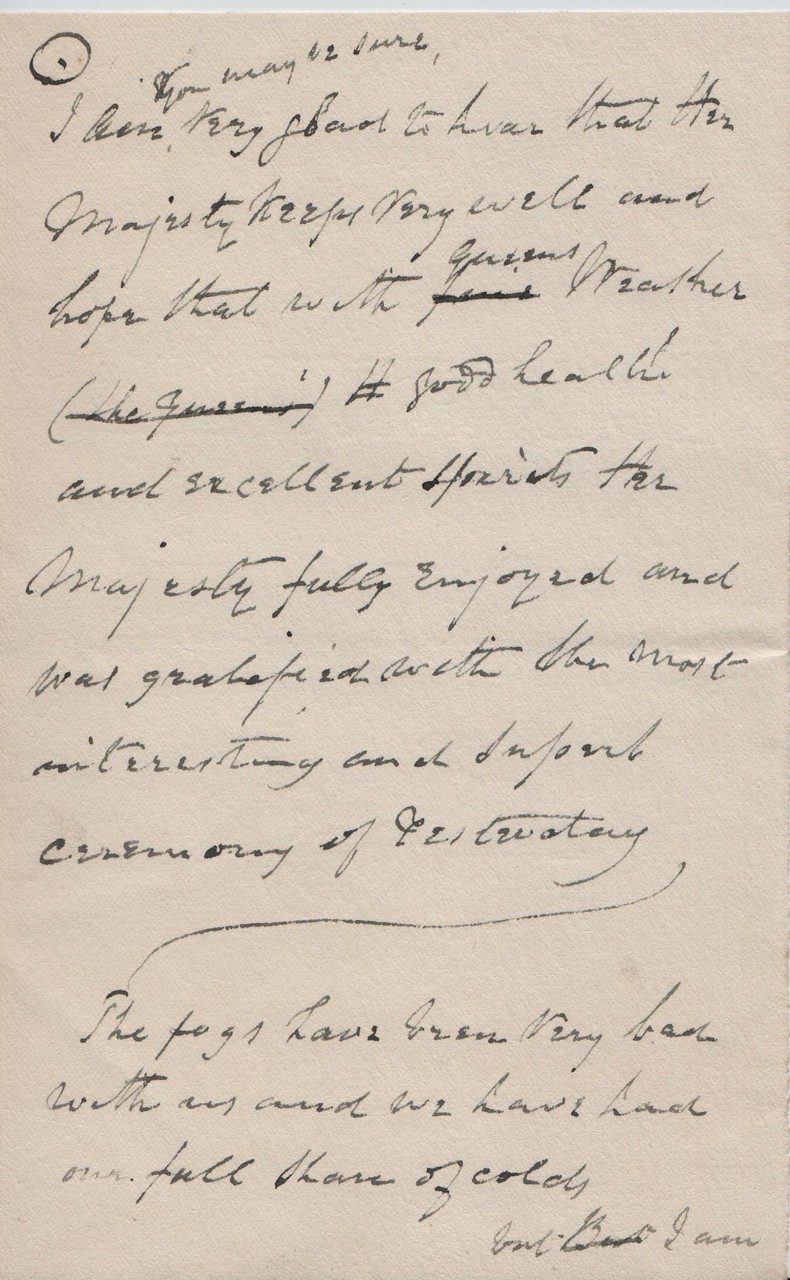 You may be sure,
I am very glad to hear that Her
Majesty keeps very well and
queens
hope that with fine Weather
(the Queen's) H good health
and excellent spirits Her
Majesty fully enjoyed and
was gratified with the most
interesting and superb
ceremony of Yesterday
The fogs have been very bad
with us and we have had
our full share of colds
but But I am